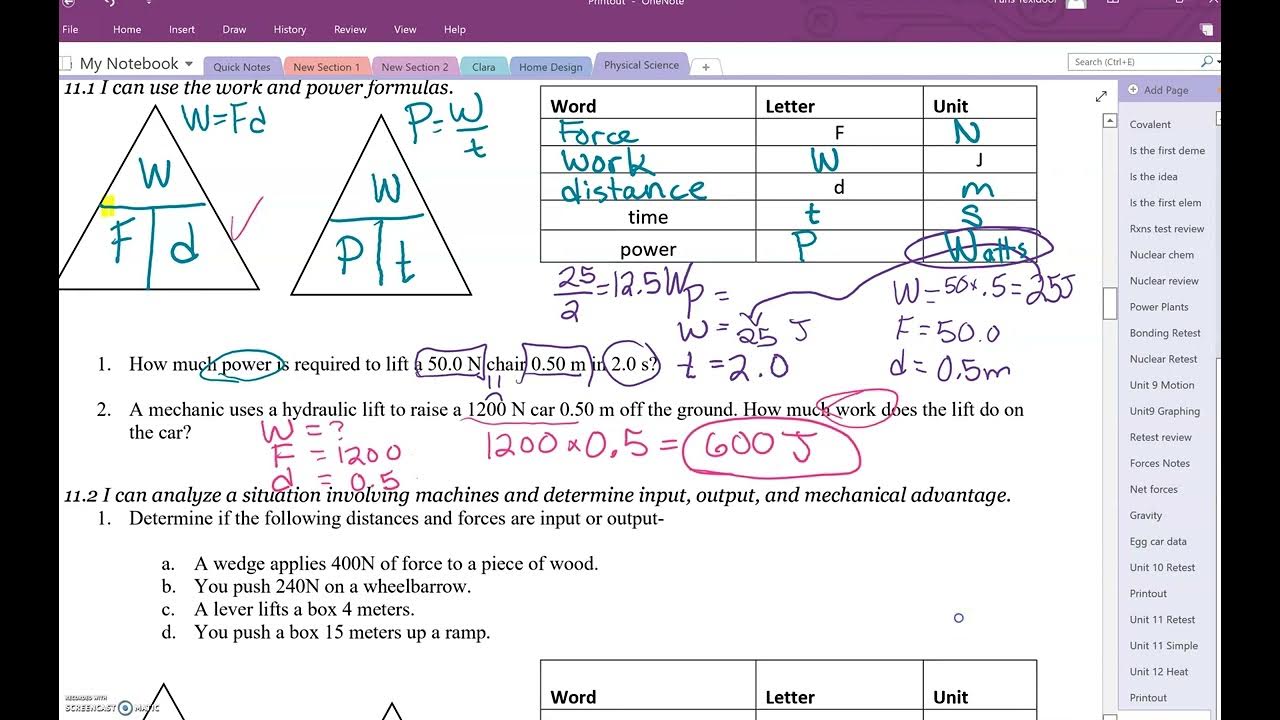 Printout - OneNote
File Home Insert Draw History Review View Help
My Notebook Quick Notes New Section 1 New Section 2 Clara Home Design Physical Science + Search (Ctrl+E)
11.1 I can use the work and power formulas.
W=Fd
W
F d
P=W/t
W
P t
Word Letter Unit
Force F N
Work W J
distance d m
time t s
power P Watts
25/2=12.5W
P =
W = 25 J
t = 2.0
W=50x.5=25J
F=50.0
d=0.5m
1. How much power is required to lift a 50.0 N chair 0.50 m in 2.0 s?
2. A mechanic uses a hydraulic lift to raise a 1200 N car 0.50 m off the ground. How much work does the lift do on
the car?
W = ?
F = 1200
d = 0.5
1200x0.5=600 J
11.2 I can analyze a situation involving machines and determine input, output, and mechanical advantage.
1. Determine if the following distances and forces are input or output-
a. A wedge applies 400N of force to a piece of wood.
b. You push 240N on a wheelbarrow.
c. A lever lifts a box 4 meters.
d. You push a box 15 meters up a ramp.
Word Letter Unit
RECORDED WITH
SCREENCAST MATIC
Add Page
Covalent
Is the first deme
Is the idea
Is the first elem
Rxns test review
Nuclear chem
Nuclear review
Power Plants
Bonding Retest
Nuclear Retest
Unit 9 Motion
Unit9 Graphing
Retest review
Forces Notes
Net forces
Gravity
Egg car data
Unit 10 Retest
Printout
Unit 11 Retest
Unit 11 Simple
Unit 12 Heat
Printout